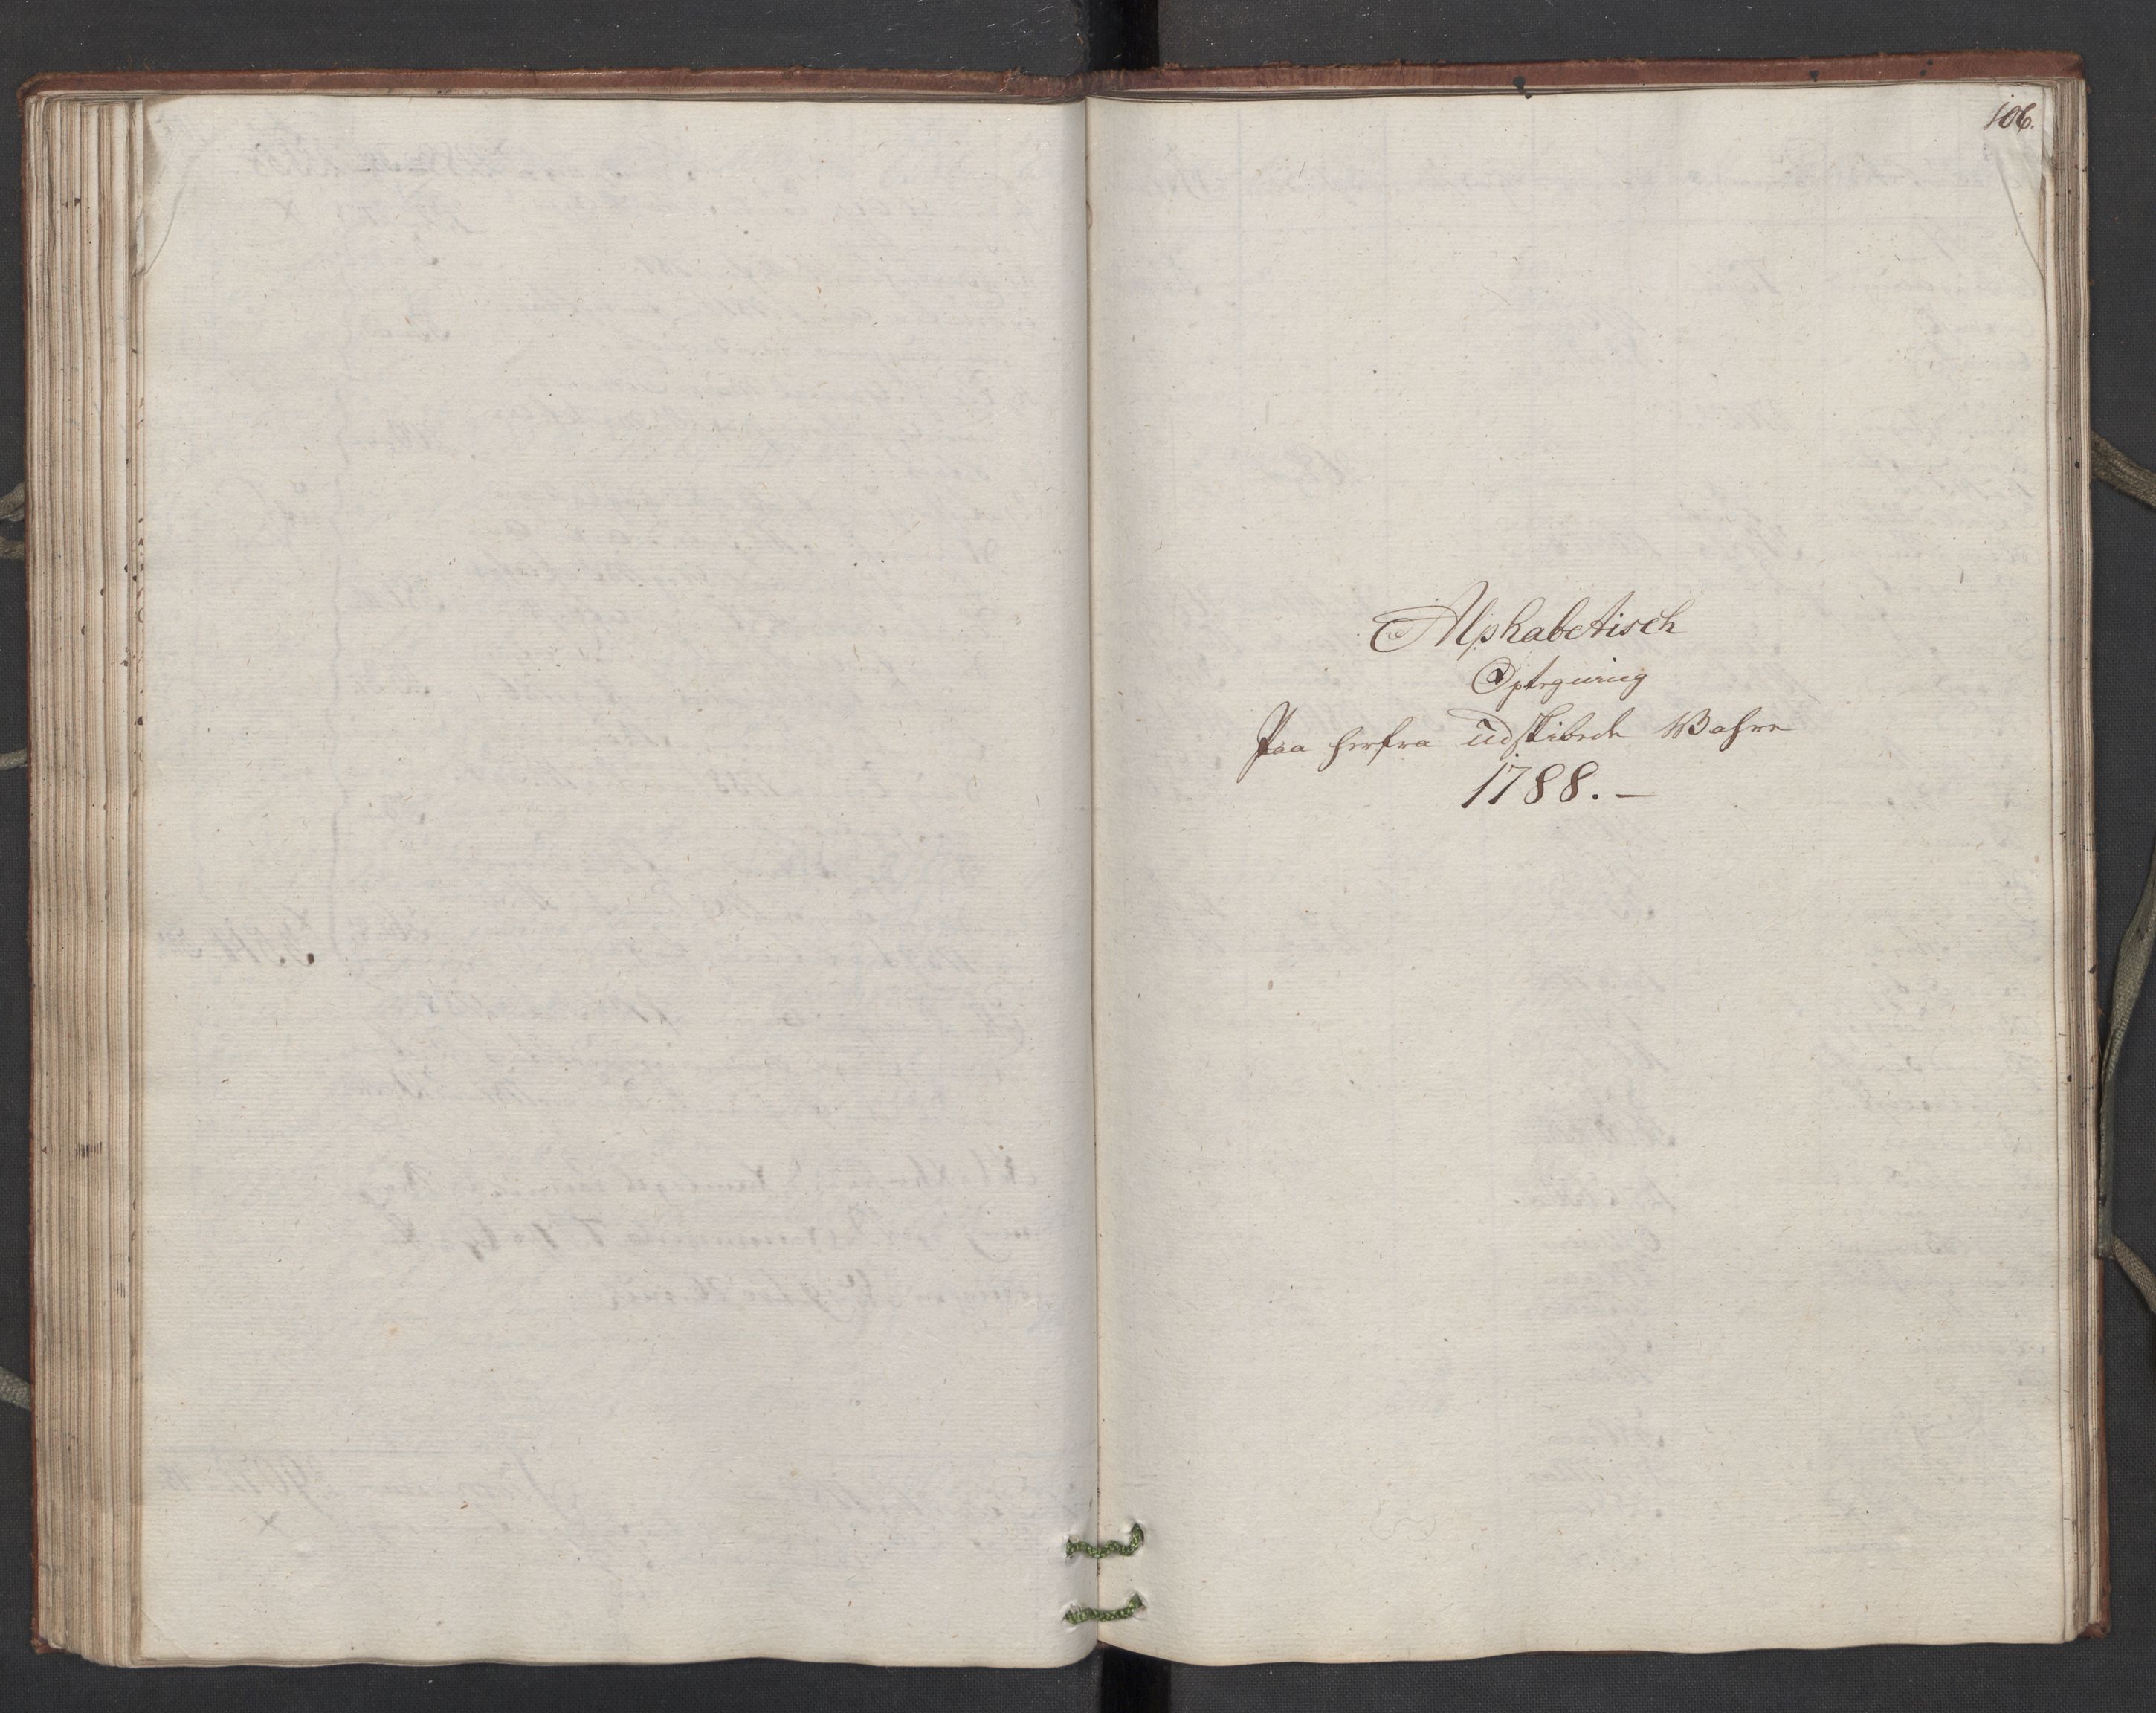 106.
Alphabetisch
Optegning
Paa herfra udskibede Wahre
1788.–